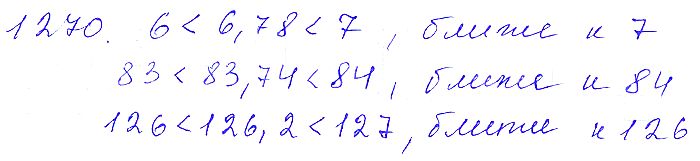 1270. 6 < 6,78 < 7, ближе к 7
83 < 83,74 < 84, ближе к 84
126 < 126,2 < 127, ближе к 126